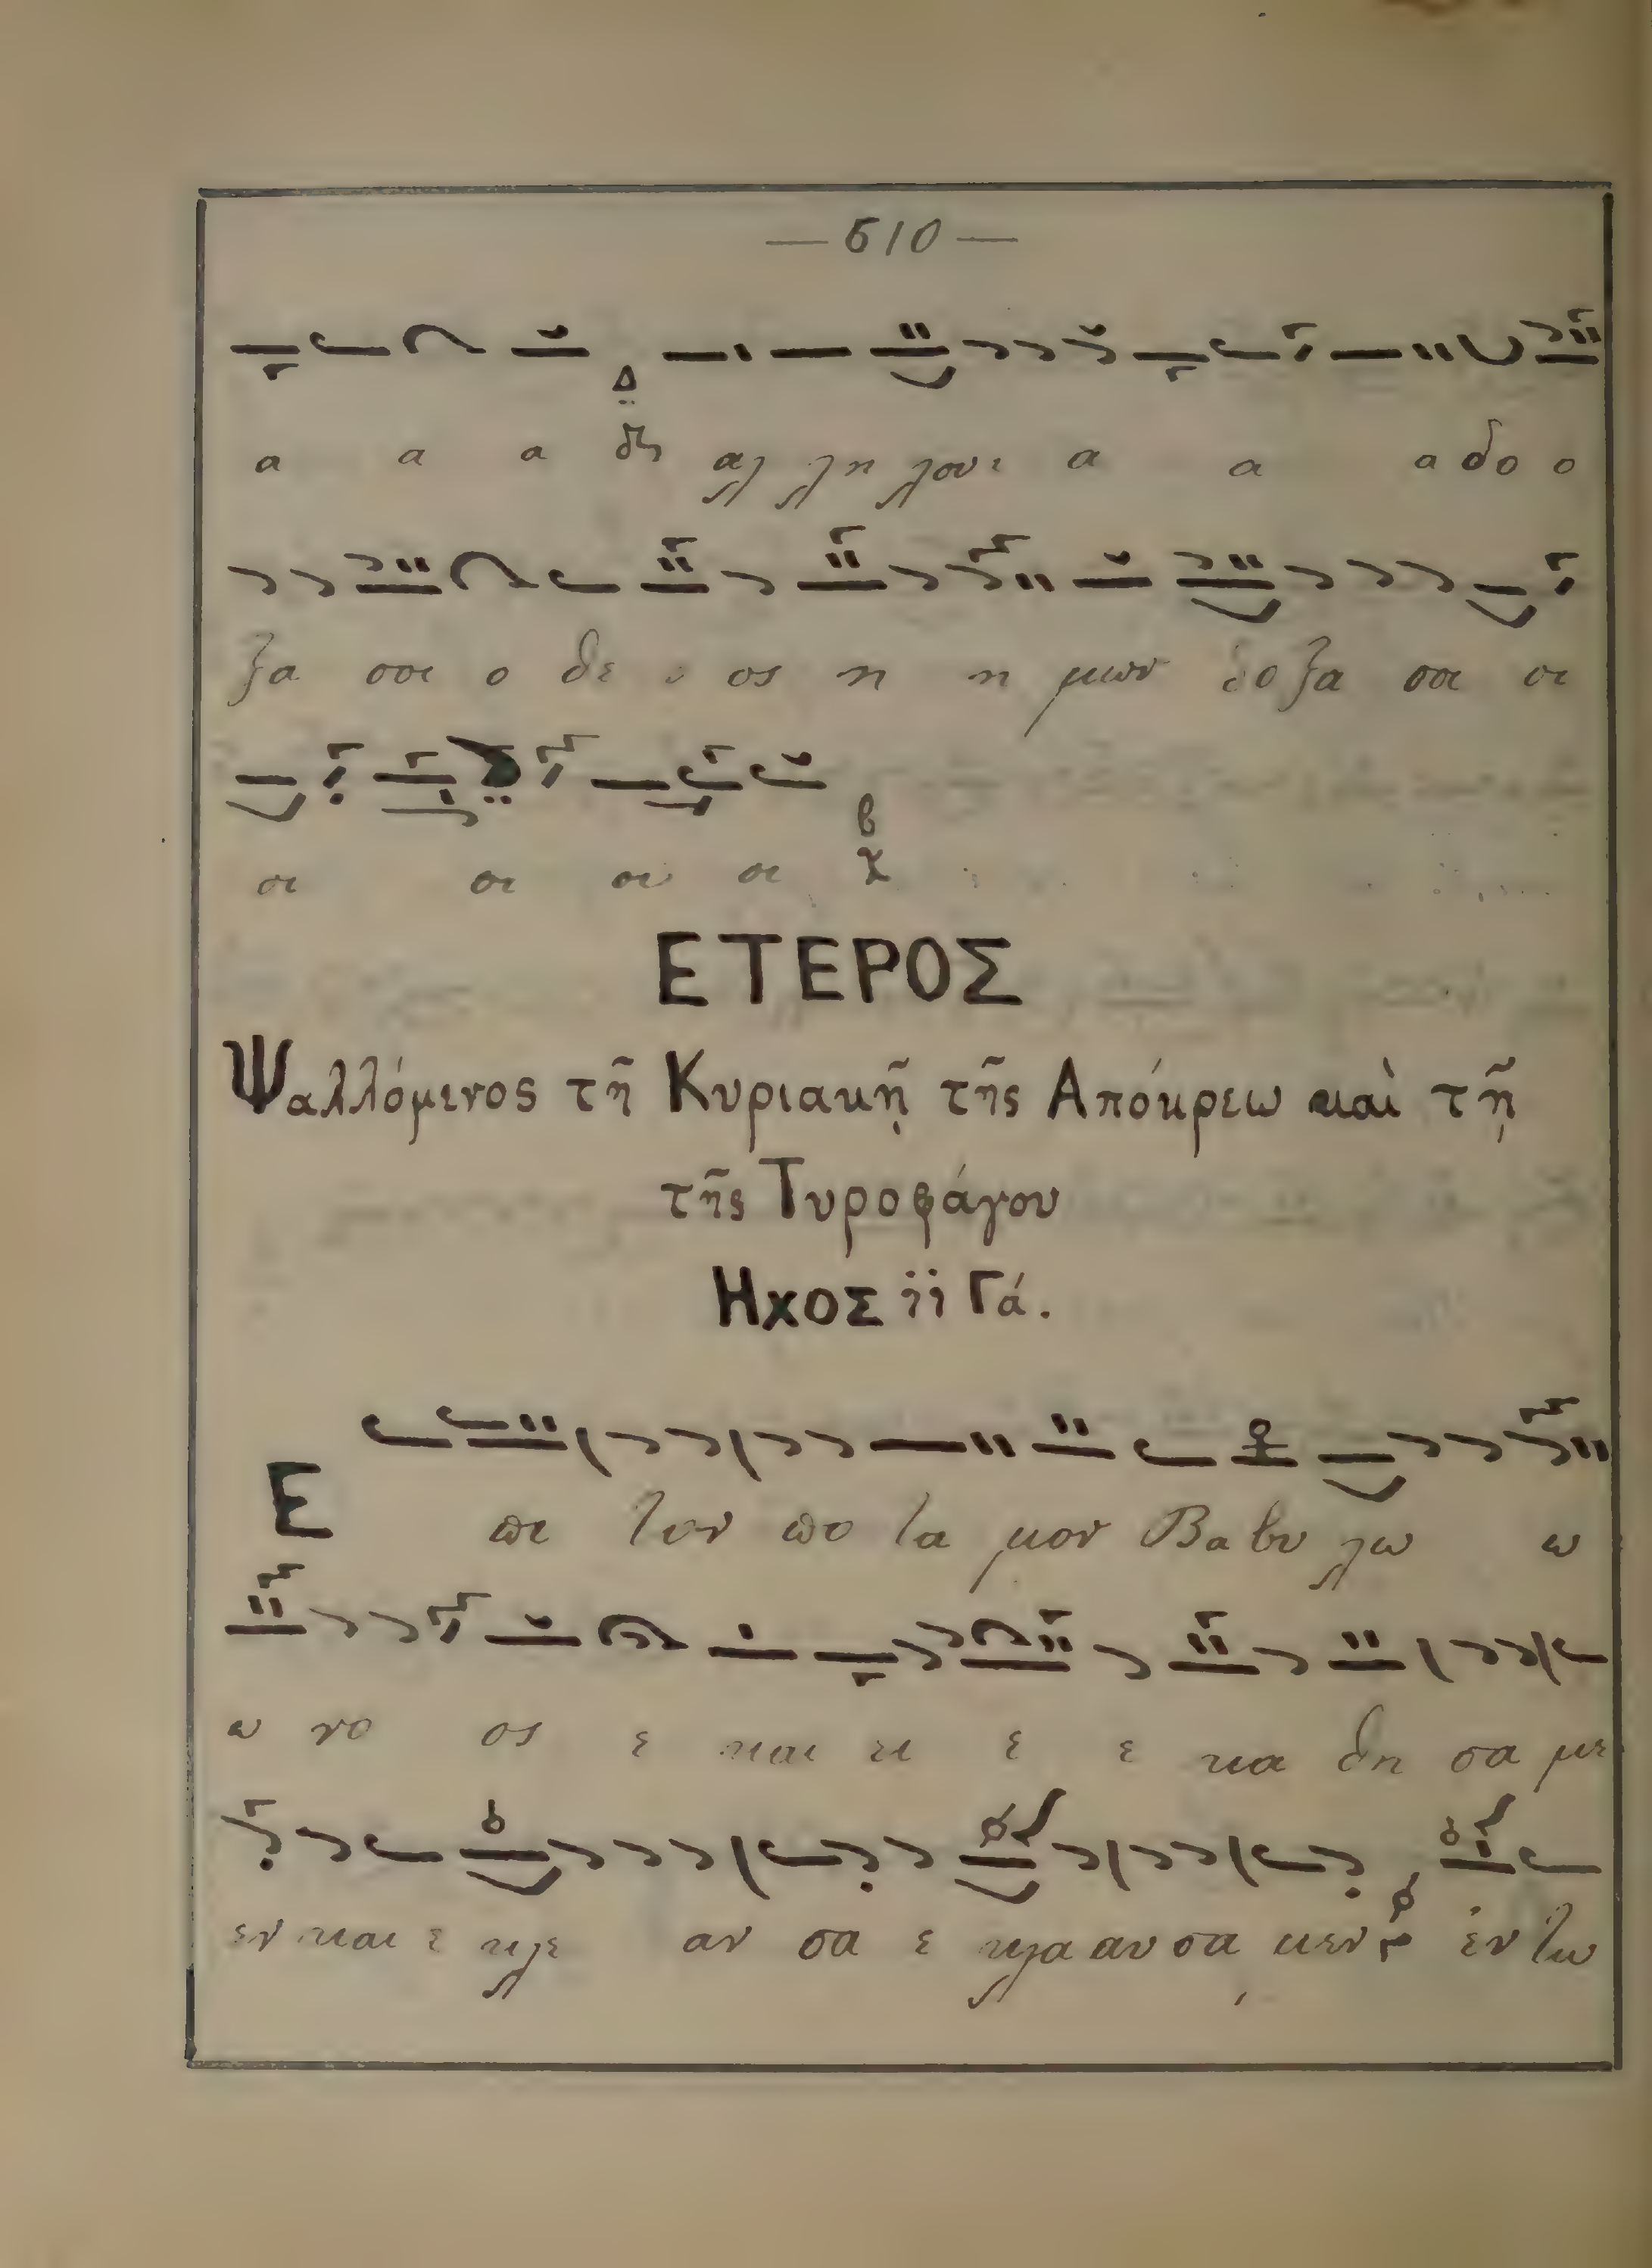 — 610 —
α α α αλ λη λουι α α α δο ο
ξα σοι ο θε ο ος η η μων δοξα σοι οι
οι οι οι οι
ΕΤΕΡΟΣ
Ψαλλόμενος τῆ Κυριακῇ τῆς Απόκρεω καὶ τῇ
τῆς Τυροφάγου
Ηχος Γά.
Ε πι τον πο τα μον Βα βυ λω ω
ω νο ος ε και ε ε κα θη σα με
εν και ε κλε αν σα ε κλα αυ σα μεν ἐν τω